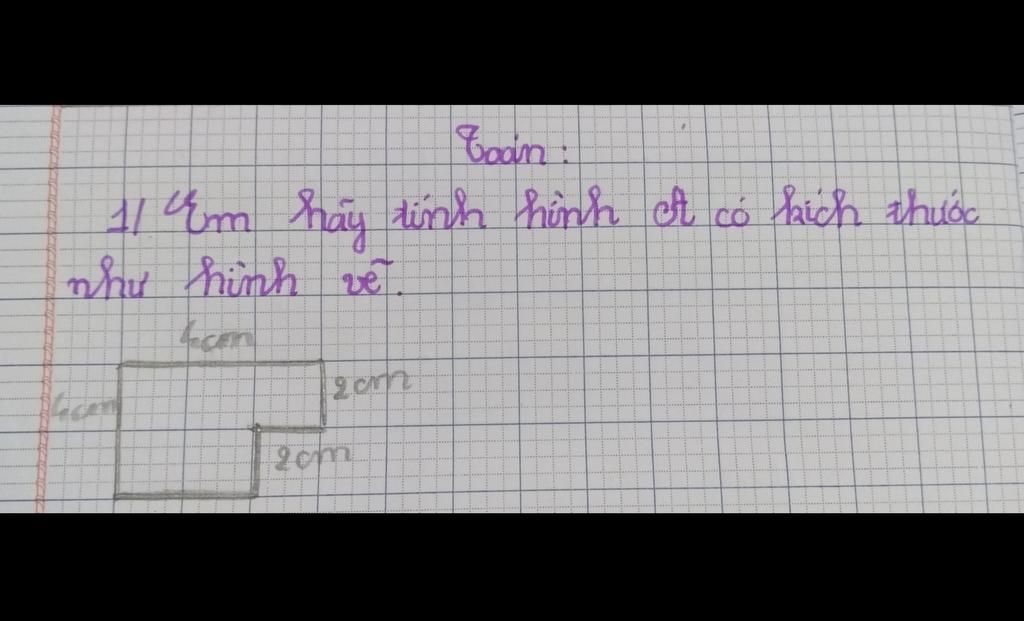 Toán:
1/ Em hãy tính hình A có kích thước
như hình vẽ.
4cm
4cm
2cm
2cm